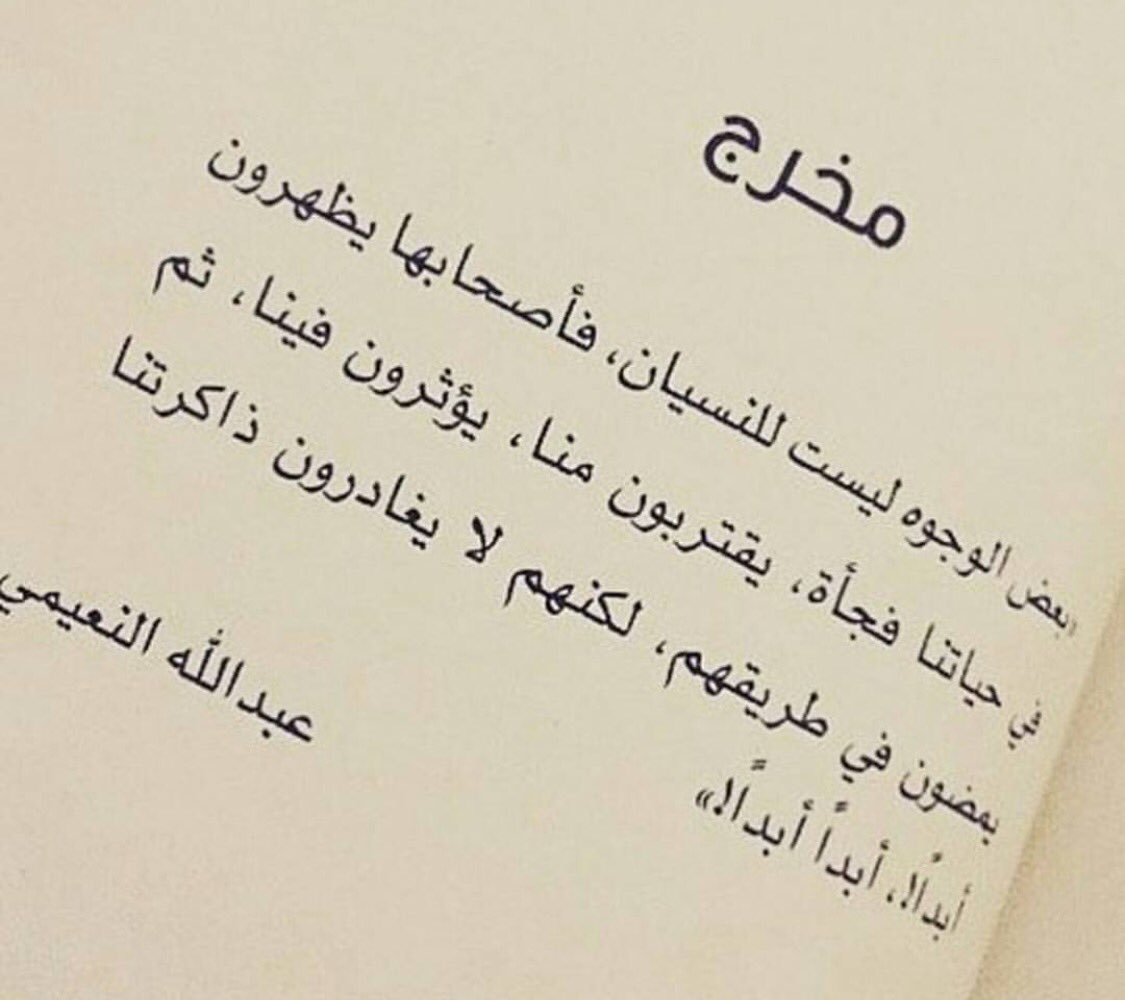 مخرج
«بعض الوجوه ليست للنسيان، فأصحابها يظهرون
في حياتنا فجأة، يقتربون منا، يؤثرون فينا، ثم
يمضون في طريقهم، لكنهم لا يغادرون ذاكرتنا
أبدًا!، أبداً أبداً!»
عبدالله النعيمي